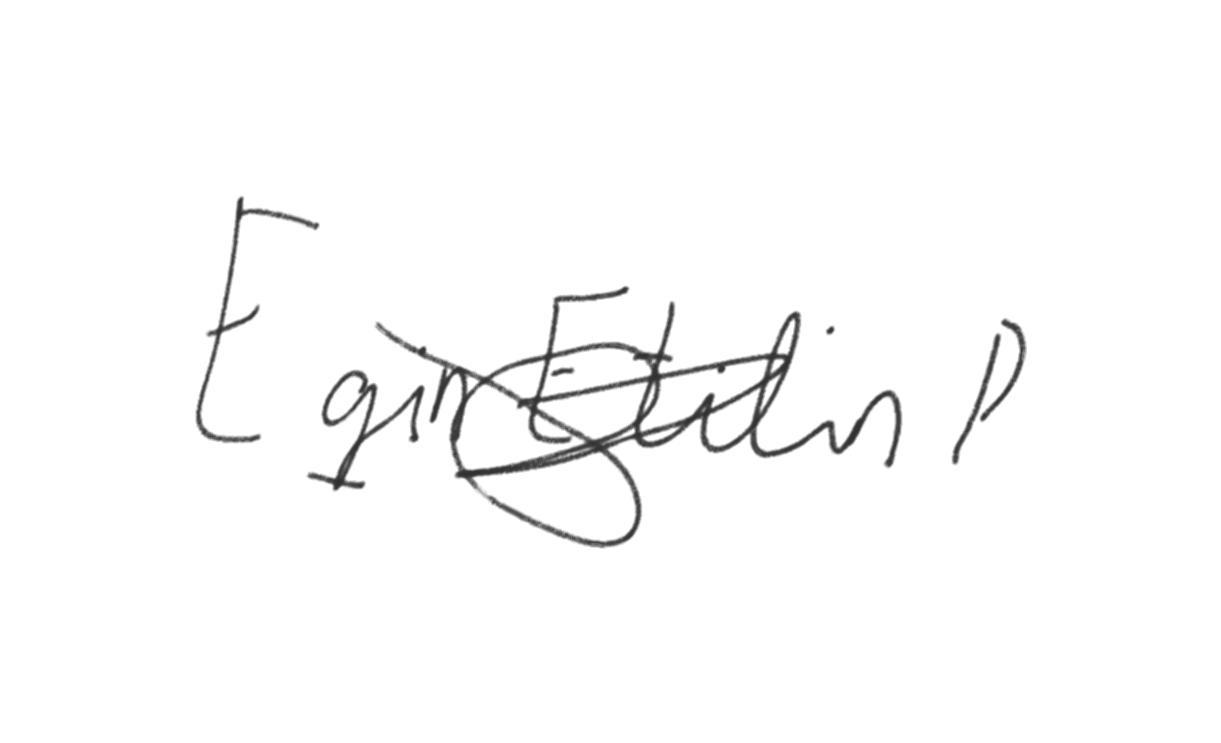 Egin Etilin D